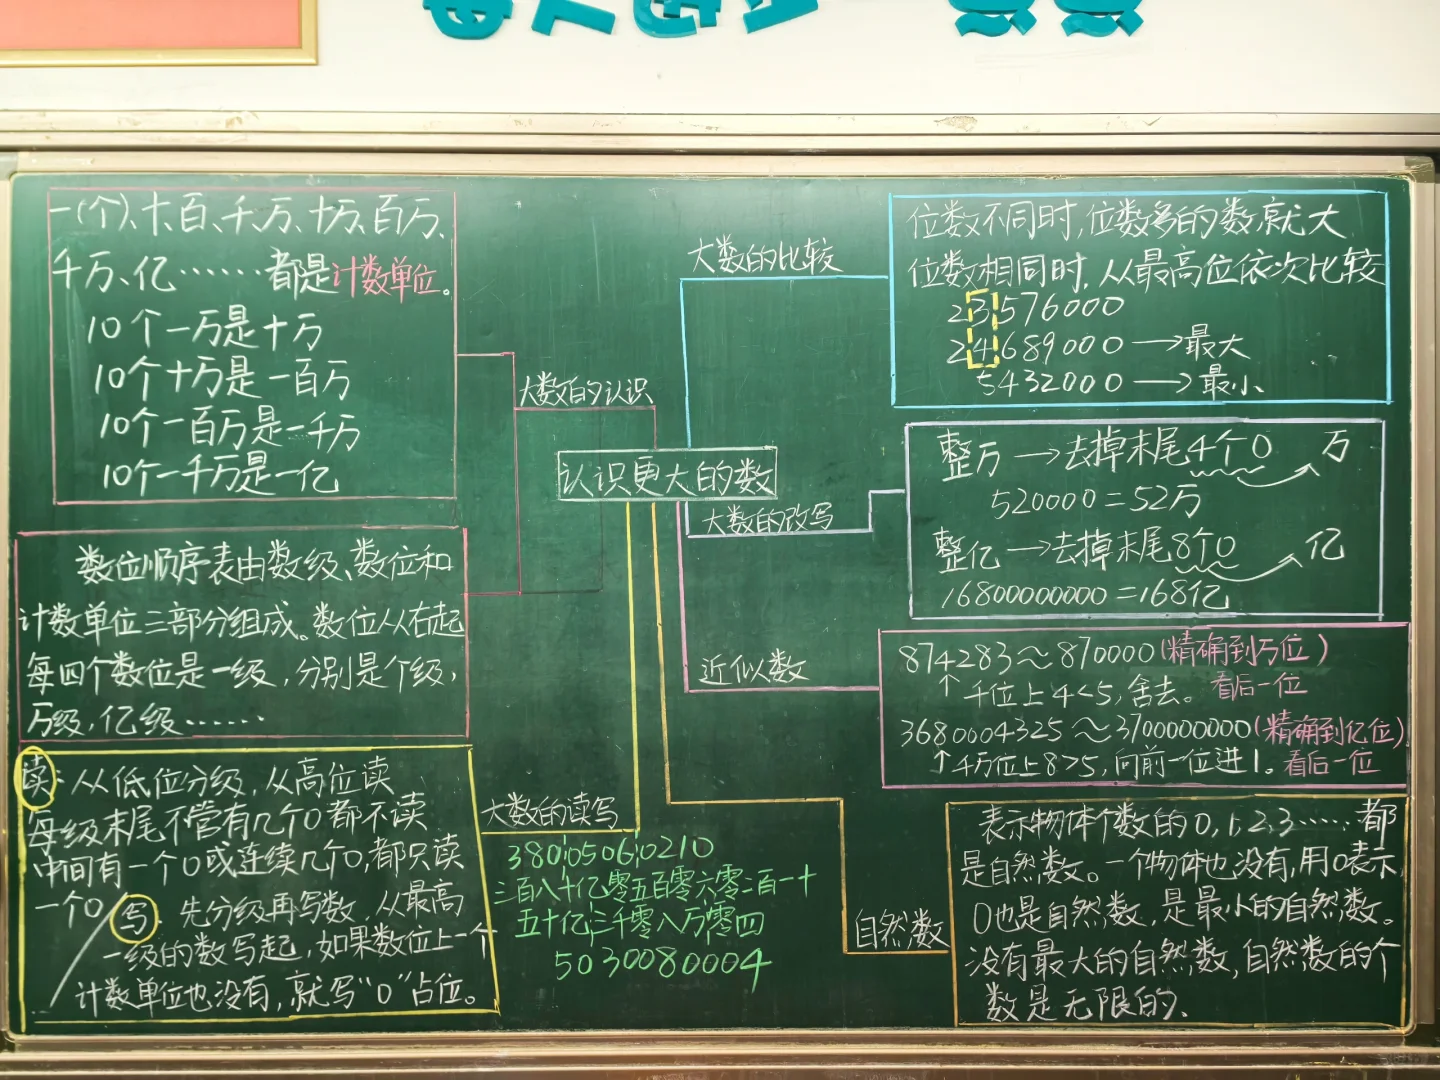 一(个)、十、百、千万、十万、百万、
千万、亿……都是计数单位。
10个一万是十万
10个十万是一百万
10个一百万是一千万
10个一千万是一亿
大数的认识
数位顺序表由数级、数位和
计数单位三部分组成。数位从右起
每四个数位是一级,分别是个级,
万级,亿级……
读:从低位分级,从高位读
每级末尾不管有几个0都不读
中间有一个0或连续几个0,都只读
一个0
写:先分级再写数,从最高
一级的数写起,如果数位上一个
计数单位也没有,就写“0”占位。
认识更大的数
大数的读写
380¦0506¦0210
三百八十亿零五百零六零二百一十
五十亿¦三千零八万¦零四
5030080004
大数的比较
位数不同时,位数多的数就大
位数相同时,从最高位依次比较
23576000
24689000→最大
5432000→最小
大数的改写
整万→去掉末尾4个0 万
520000=52万
整亿→去掉末尾8个0 亿
16800000000=168亿
近似数
874283～870000(精确到万位)
↑千位上4<5,舍去。看后一位
3680004325～3700000000(精确到亿位)
↑千万位上8>5,向前一位进1。看后一位
自然数
表示物体个数的0,1,2,3……都
是自然数。一个物体也没有,用0表示,
0也是自然数,是最小的自然数。
没有最大的自然数,自然数的个
数是无限的、